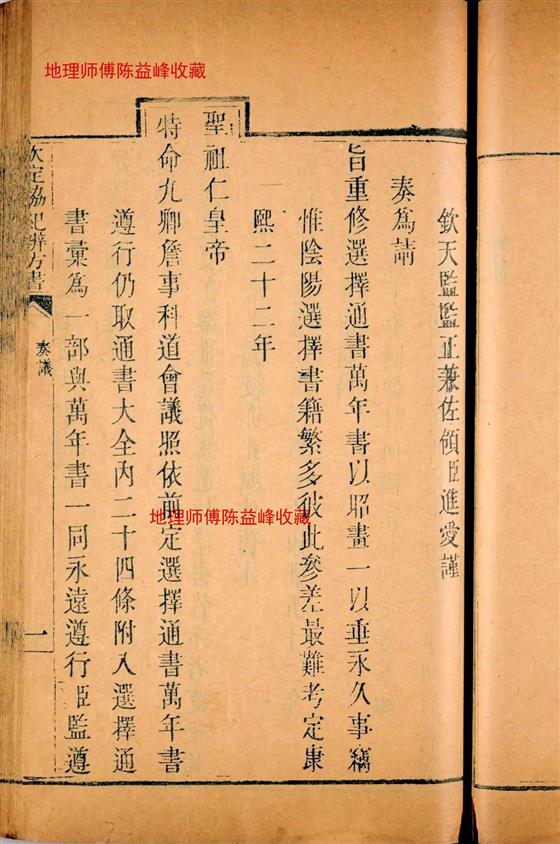 地理师傅陈益峰收藏
欽天監監正兼佐領臣進愛謹
奏為請
旨重修選擇通書萬年書以昭畫一以垂永久事竊
惟陰陽選擇書籍繁多彼此參差最難考定康
熙二十二年
聖祖仁皇帝
特命九卿詹事科道會議照依前定選擇通書萬年書
遵行仍取通書大全內二十四條附入選擇通
書彙為一部與萬年書一同永遠遵行臣監遵
欽定協紀辨方書
奏議
一
地理师傅陈益峰收藏